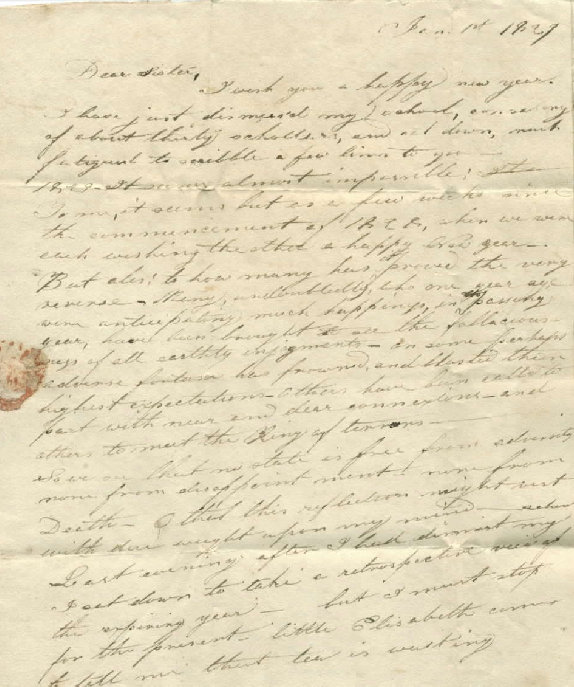 Jan. 1st 1829
Dear Sister,
I wish you a happy new year.
I have just dismised my school, consisting
of about thirty scholders, and set down, much
fatigued to scribble a few lines to you
1829 - It seems almost impossible;
To me, it seems but as a few weeks since
the commencement of 1828, when we were
each wishing the other a happy New year -
But alas! to how many has it proved the very
reverse - Many, undoubtedly, who one year ago
were anticipating much happiness, in the passing
year, have been brought to see the fallacious-
ness of all earthly enjoyments - on some perhaps
adverse fortune has frowned, and blasted their
highest expectations - Others have been calld to
part with near and dear connexions - and
others to meet the King of terrors -
So we see that no state is free from adversity
none from disappointment & none from
Death - O that this reflection might rest
with due weight upon my mind -
Last evening after I had dismist my
I set down to take a retrospective view of
the expiring year - but I must stop
for the present - little Elisabeth comes
to tell me that tea is waiting